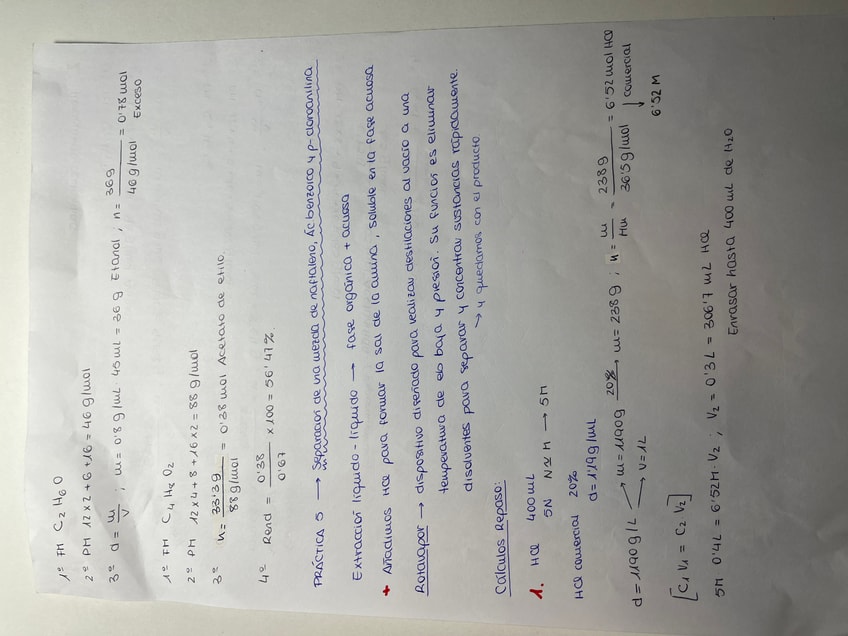 1º FM C2H6O
2º PM 12x2+6+16=46g/mol
3º d= m/V ; m=0'8g/mL · 45mL = 36g Etanol, n= 36g/46g/mol = 0'78mol
Exceso
1º FM C4H8O2
2º PM 12x4+8+16x2=88g/mol
3º n= 33'3g/88g/mol = 0'38mol Acetato de etilo.
4º Rend= 0'38/0'67 x100=56'47%
PRÁCTICA 5 → Separación de una mezcla de naftaleno, Ác benzoico y p-cloroanilina
Extracción líquido-líquido → fase orgánica + acuosa
+ Añadimos HCl para formar la sal de la amina, soluble en la fase acuosa
Rotavapor → dispositivo diseñado para realizar destilaciones al vacío a una
temperatura de eb baja y presión. Su función es eliminar
disolventes para separar y concentrar sustancias rápidamente.
→ y quedarnos con el producto
Cálculos Repaso:
1. HCl 400mL
5N N≈M → 5M
HCl comercial 20%
d=1'19g/mL
d=1190g/L → m=1190g 20%→ m=238g ; n= m/Mu = 238g/36'5g/mol = 6'52mol HCl
→ V=1L
↓ comercial
6'52M
[C1V1 = C2V2]
5M · 0'4L = 6'52M·V2 ; V2=0'3L = 306'7mL HCl
Enrasar hasta 400mL de H2O